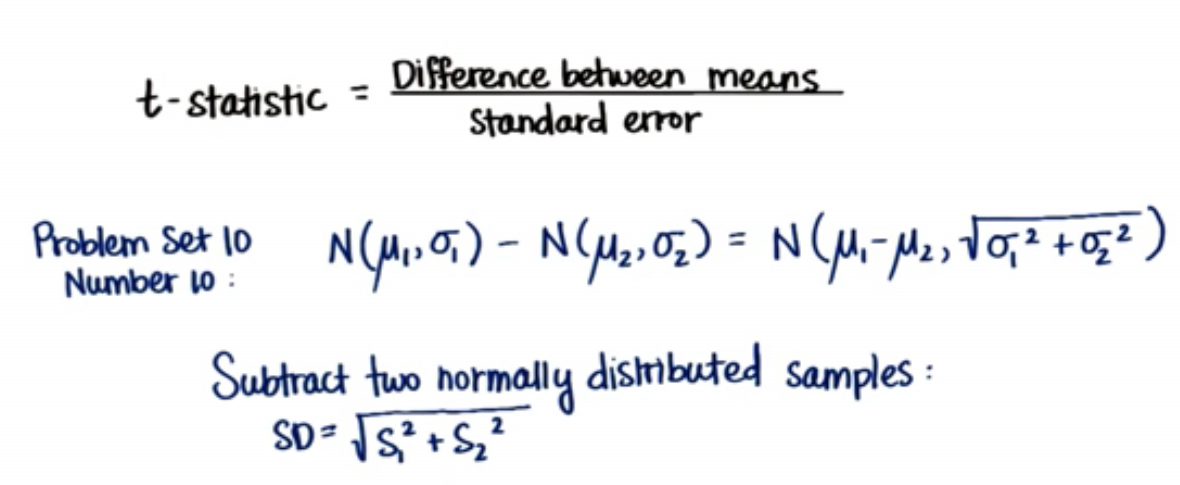 t-statistic = Difference between means / Standard error
Problem Set 10
Number 10 :
N(μ₁,σ₁) - N(μ₂,σ₂) = N(μ₁-μ₂, √σ₁² + σ₂²)
Subtract two normally distributed samples :
SD = √S₁² + S₂²